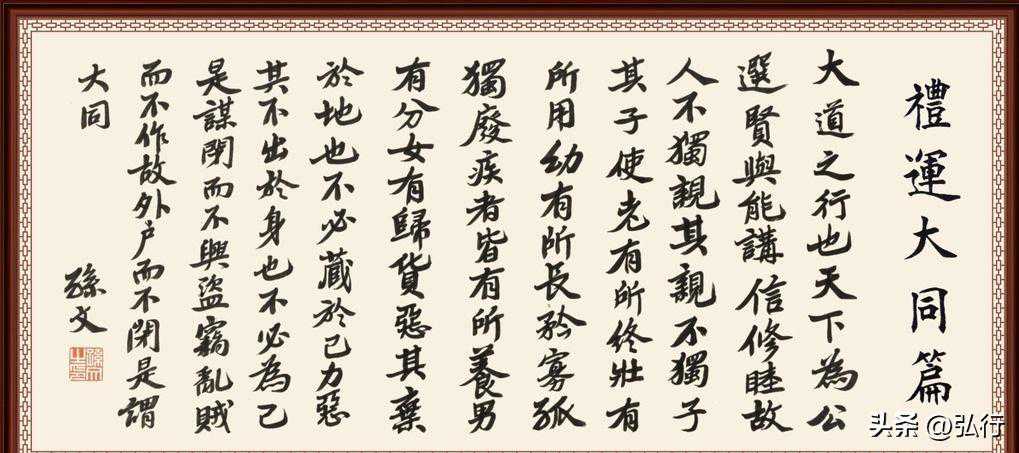 禮運大同篇
大道之行也天下為公
選賢與能講信修睦故
人不獨親其親不獨子
其子使老有所終壯有
所用幼有所長矜寡孤
獨廢疾者皆有所養男
有分女有歸貨惡其棄
於地也不必藏於己力惡
其不出於身也不必為己
是謀閉而不興盜竊亂賊
而不作故外户而不閉是謂
大同
孫文
头条 @弘行